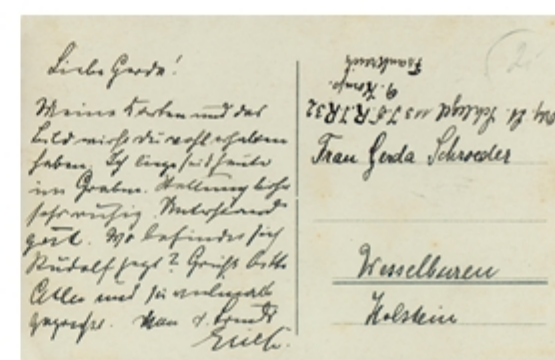 Liebe Gerda!
Meine Karten und das
Bild wirst du wohl erhalten
haben. Ich liege seit heute
im Graben. Stellung
sehr ruhig. Unterstand
gut. Wo befindet sich
Rudolf jetzt? Grüße bitte
Alle und sei vielmals
gegrüßt.
Frankreich
9. Komp.
Lt. Schlegel
Frau Gerda Schroeder
Wesselburen
Holstein